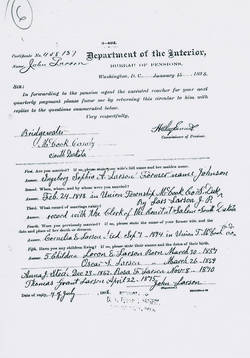 6
3-402.
Certificate No. 458137
Name, John Larson
Department of the Interior,
BUREAU OF PENSIONS,
Washington, D. C., January 15, 1898.
SIR:
In forwarding to the pension agent the executed voucher for your next
quarterly payment please favor me by returning this circular to him with
replies to the questions enumerated below.
Very respectfully,
Commissioner of Pensions.
Bridgewater
McCook County
South Dakota
First. Are you married? If so, please state your wife's full name and her maiden name.
Ingeborg Sophia A Larson Former name Johnson
Second. When, where, and by whom were you married?
Feb. 24, 1898 in Union Township McCook Co S. Dak
by Lars Larson J. P.
Third. What record of marriage exists?
record with the Clerk of the Court at Salem South Dakota
Fourth. Were you previously married? If so, please state the name of your former wife and the
date and place of her death or divorce.
Cornelia E Larson Died Sep 7, 1894 in Union T. McCook Co
Fifth. Have you any children living? If so, please state their names and the dates of their birth.
5 Children Loren E Larson Born March 30 1857
Oscar A Larson March 26 1859
Anna J Stout Dec 23 1862 Rosa E Larson Nov 8 1870
Thomas Grant Larson April 22 1875
John Larson
Date of reply, 4 July